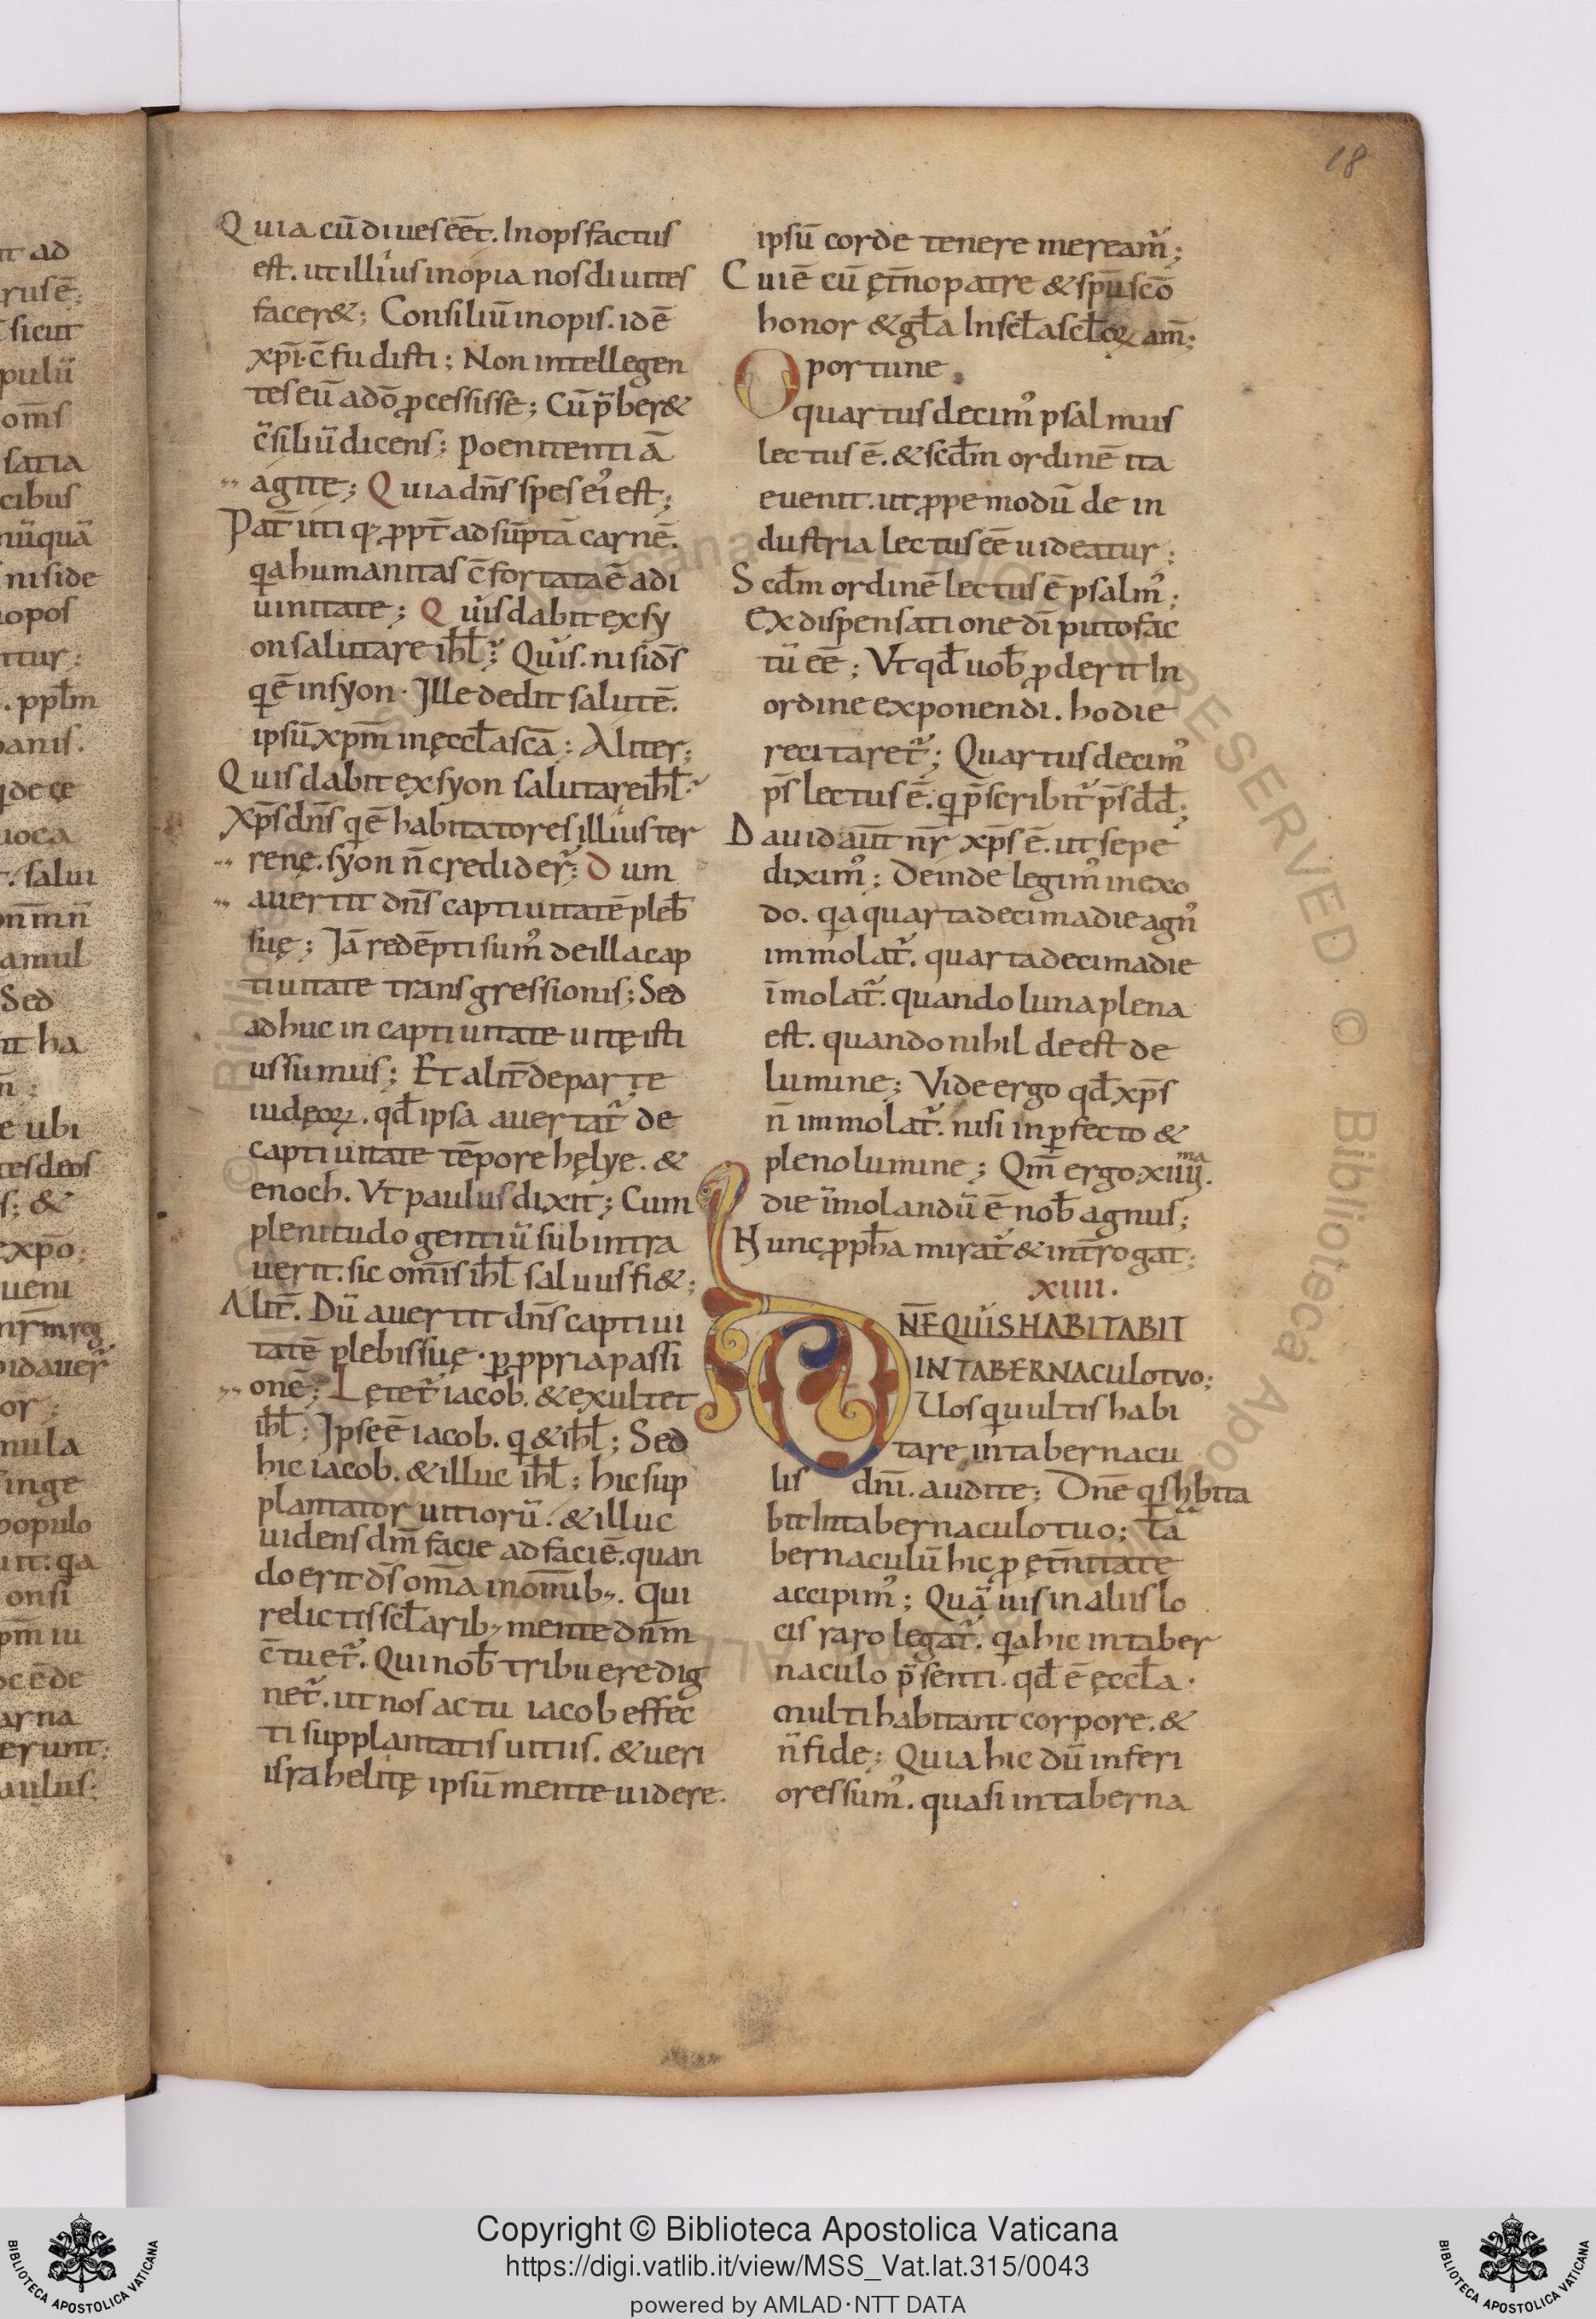 18
Quia cū diues eēt. Inops factus
est. ut illius inopia nos diuites
facer&; Consiliū inopis. id ē
xp̄i. c̄fudisti; Non intellegen
tes eū adō p̄cessisse; Cū p̄ber&
c̄siliū dicens; Poenitentiā
agite; Quia dn̄s spes ei᾽ est;
Pat̄ utiq; ppt̄ adsūptā carnē.
qa humanitas c̄fortata ē a di
uinitate; Quis dabit ex sy
on salutare ihł; Quis. nisi ds̄
qē in syon. Ille dedit salutē.
ipsū xpm̄ in ęccła scā; Aliter;
Quis dabit ex syon salutare ihł.
Xps̄ dn̄s qē habitatores illius ter
renę. syon n̄ credider̄; Dum
auertit dn̄s captiuitatē pleb̄
suę; Iā redēpti sum᾽ de illa cap
tiuitate transgressionis; Sed
adhuc in captiuitate uitę isti
us sumus; Et alit̄ de parte
iudęoꝝ. qđ ipsa auertat̄ de
captiuitate tēpore hęlye. &
enoch. Vt paulus dixit; Cum
plenitudo gentiū subintra
uerit. sic omīs ihł saluus fi&;
Alit̄. Dū auertit dn̄s captiui
tatē plebis suę. p ppria passi
onē; Lętet̄ iacob. & exultet
ihł; Ipse ē iacob. q & ihł; Sed
hic iacob. & illuc ihł; hic sup
plantator uitiorū. & illuc
uidens dm̄ facie ad faciē. quan
do erit ds̄ om̄a in omīb;. Qui
relictis scłarib; mente dnm̄
c̄tuet̄. Qui nob̄ tribuere dig
net̄. ut nos actu iacob effec
ti supplantatis uitiis. & ueri
israhelitę ipsū mente uidere.
ipsū corde tenere meream̄;
Cui ē cū ęt̄no patre & spū scō
honor & gła In scła scłoꝝ am̄;
Oportune
quartus decim᾽ psalmus
lectus ē. & scđm ordinē ita
euenit. ut ppe modū de in
dustria lectus eē uideatur;
Scđm ordinē lectus ē psalm᾽;
Ex dispensatione dī puto fac
tū eē; Vt qđ uob̄ pderit In
ordine exponendi. hodie
recitaret̄; Quartus decim᾽
ps̄ lectus ē. q p̄scribit̄ ps̄ dđ;
Dauid aut̄ nr̄ xps̄ ē. ut sepe
dixim᾽; Deinde legim᾽ in exo
do. qa quartadecima die agn᾽
immolat̄. quartadecima die
īmolat̄. quando luna plena
est. quando nihil deest de
lumine; Vide ergo qđ xps̄
n̄ immolat̄. nisi in pfecto &
pleno lumine; Qm̄ ergo xiiij.ma
die īmolandū ē nob̄ agnus;
Hunc ppħa mirat̄ & int̄rogat;
XIIII.
DN̄E QUIS HABITABIT
IN TABERNACULO TVO;
Uos qui uultis habi
tare in tabernacu
lis dnī. audite; Dn̄e qis hbita
bit In tabernaculo tuo; Ta
bernaculū hic p ęt̄nitate
accipim᾽; Quā uis in aliis lo
cis raro legat̄. qa hic in taber
naculo p̄senti. qđ ē ęccła.
multi habitant corpore. &
n̄ fide; Quia hic dū inferi
ores sum᾽. quasi in taberna
Copyright © Biblioteca Apostolica Vaticana
https://digi.vatlib.it/view/MSS_Vat.lat.315/0043
powered by AMLAD·NTT DATA